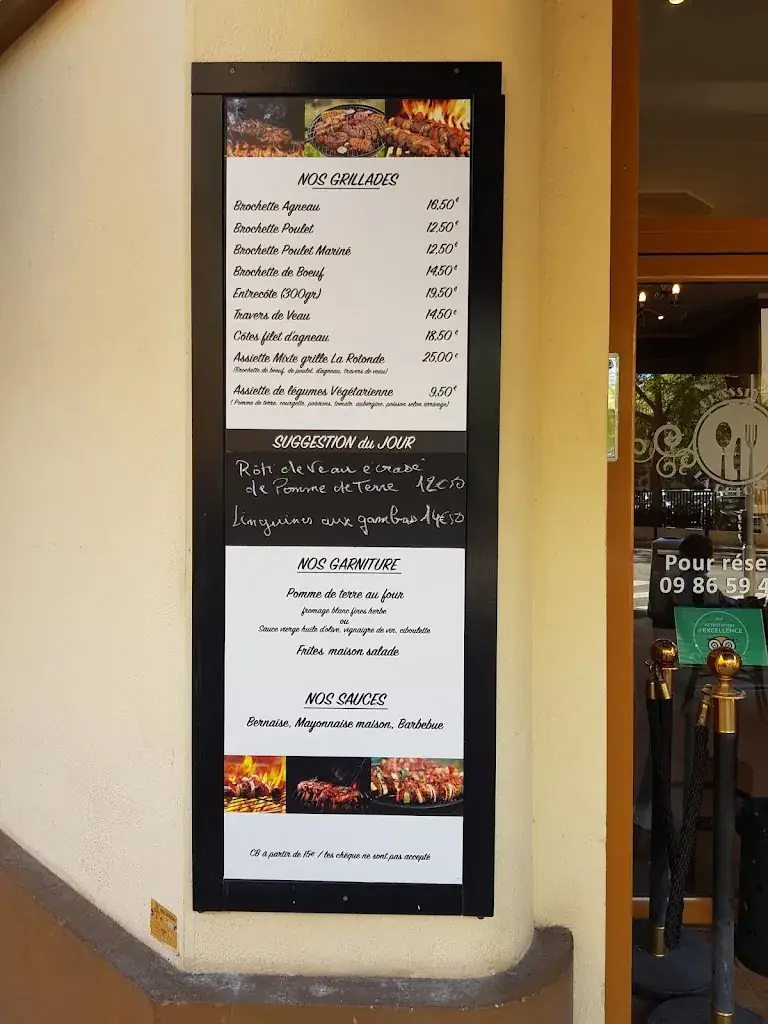 NOS GRILLADES
Brochette Agneau 16,50€
Brochette Poulet 12,50€
Brochette Poulet Mariné 12,50€
Brochette de Boeuf 14,50€
Entrecôte (300gr) 19,50€
Travers de Veau 14,50€
Côtes filet d'agneau 18,50€
Assiette Mixte grille La Rotonde 25,00€
(Brochette de boeuf, de poulet, d'agneau, travers de veau)
Assiette de légumes Végétarienne 9,50€
( Pomme de terre, courgette, poivrons, tomate, aubergine, poisson selon arrivage)
SUGGESTION du JOUR
Rôti de Veau écrasé
de Pomme de Terre 12€50
Linguines aux gambas 14€50
NOS GARNITURE
Pomme de terre au four
fromage blanc fines herbe
ou
Sauce vierge huile d'olive, vignaigre de vin, ciboulette
Frites maison salade
NOS SAUCES
Bernaise, Mayonnaise maison, Barbebue
CB à partir de 15€ / les chèque ne sont pas accepté
Pour rése
09 86 59 4
ATTESTATION
d'EXCELLENCE